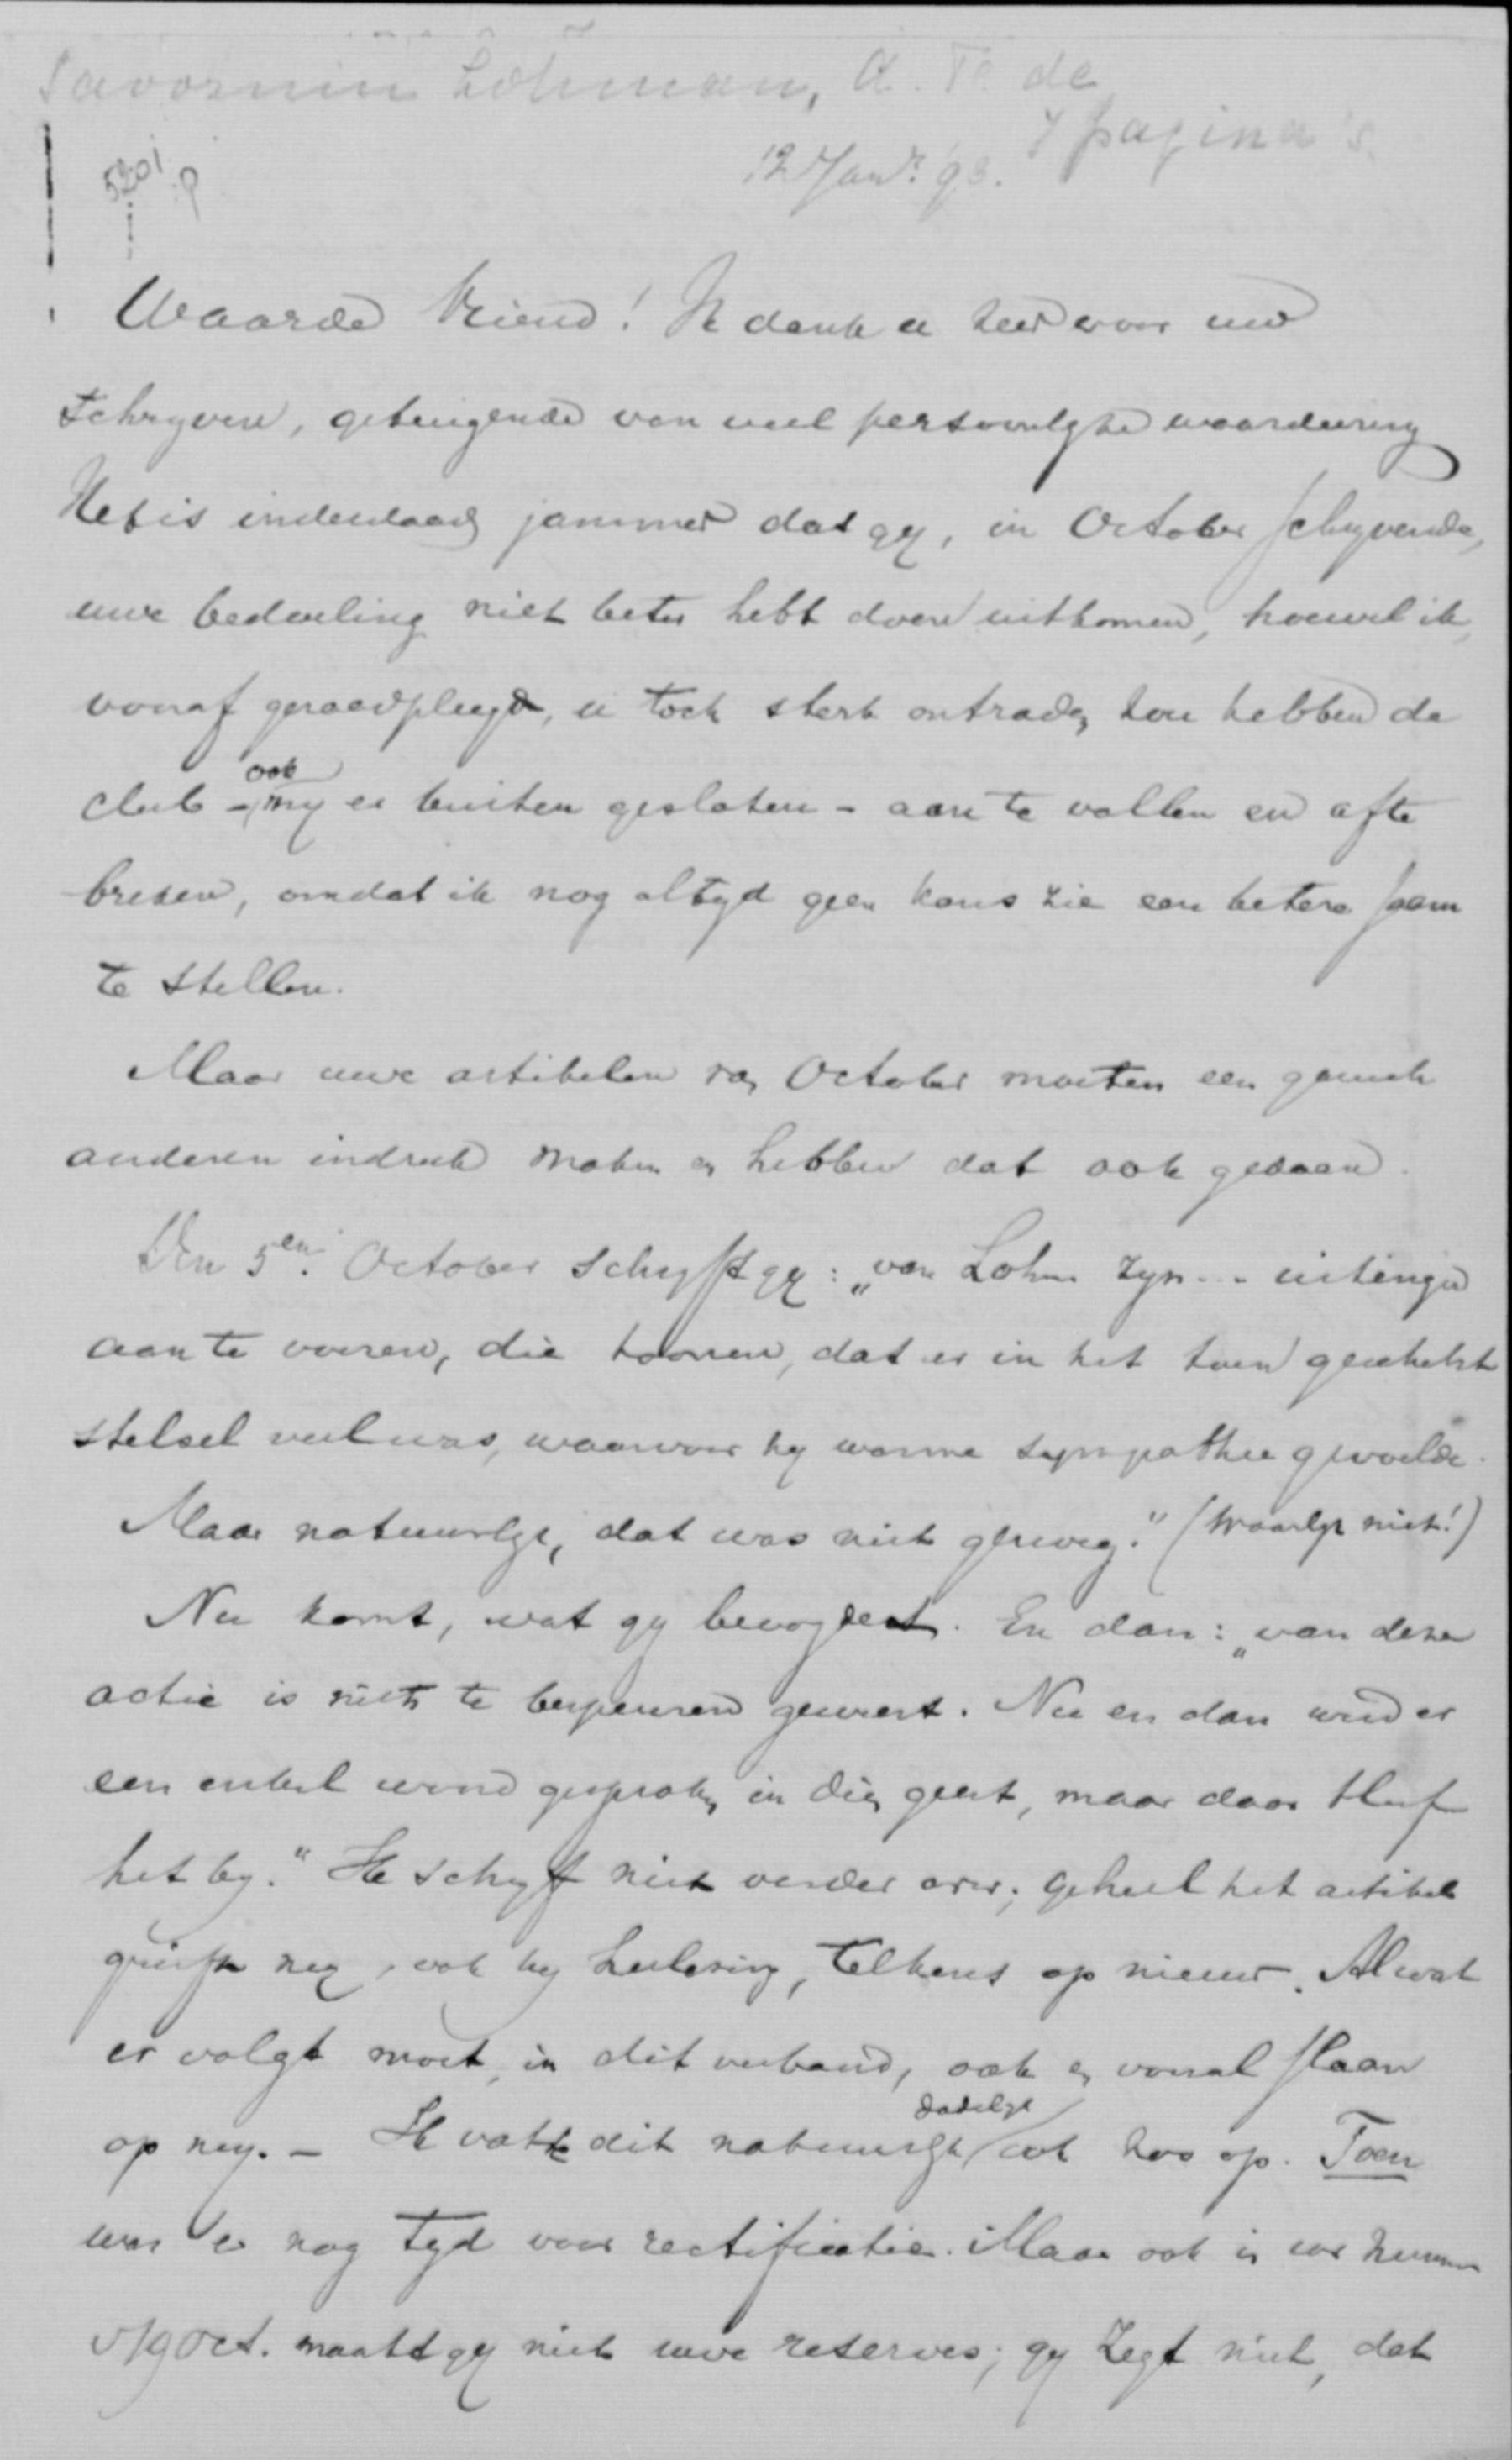 Savornin Lohman, A. F. de
7 pagina's.
12 Jan. '93.
5201
Waarde Vriend! Ik dank u zeer voor uw
schryven, getuigende van veel persoonlyke waardeering
Het is inderdaad jammer dat gy, in October schryvende,
uwe bedoeling niet beter hebt doen uitkomen, hoewel ik,
vooraf geraadpleegd, u toch sterk ontraden zou hebben de
club - ook my er buiten gesloten - aan te vallen en af te
breken, omdat ik nog altyd geen kans zie een betere saam
te stellen.
Maar uwe artikelen van October moesten een gansch
anderen indruk maken en hebben dat ook gedaan.
Den 5en October schryft gy: „van Lohm zyn -- uitingen
aan te voeren, die toonen, dat er in het toen geschetst
stelsel veel was, waarvoor hy warme sympathie gevoelde.
Maar natuurlyk, dat was niet genoeg." (Waarlyk niet!)
Nu komt, wat gy bevogten. En dan: „van deze
actie is niets te bespeuren geweest. Nu en dan werd er
een enkel woord gesproken in dien geest, maar daar bleef
het by." Ik schryf niet verder over; geheel het artikel
griefde my, ook by herlezing, telkens op nieuw. Al wat
er volgt moet, in dit verband, ook en vooral slaan
op my. - Ik vatte dit natuurlyk dadelyk ook zoo op. Toen
was er nog tyd voor rectificatie. Maar ook in uw nummer
v 19 Oct. maakt gy niet uwe reserves; gy zegt niet, dat